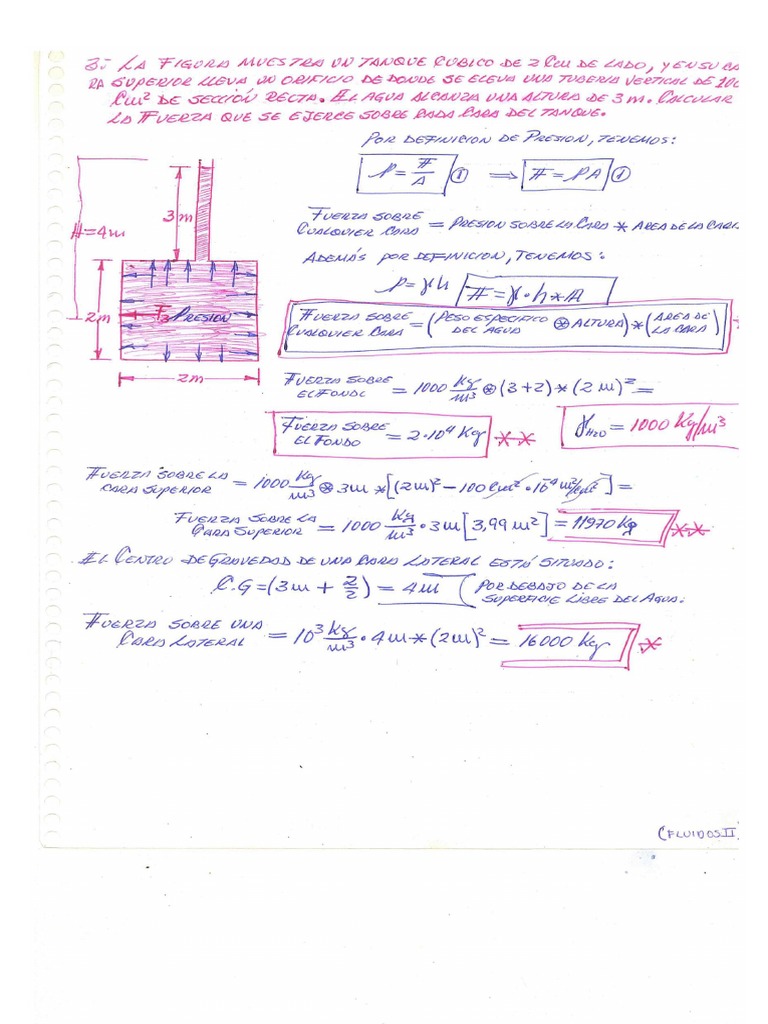 3.- LA FIGURA MUESTRA UN TANQUE CUBICO DE 2 Cm DE LADO, Y EN SU CA
RA SUPERIOR LLEVA UN ORIFICIO DE DONDE SE ELEVA UNA TUBERIA VERTICAL DE 100
Cm² DE SECCIÓN RECTA. EL AGUA ALCANZA UNA ALTURA DE 3 m. CALCULAR
LA FUERZA QUE SE EJERCE SOBRE CADA CARA DEL TANQUE.
POR DEFINICION DE PRESION, TENEMOS:
P = F/A ① ⟹ F = PA ①
3m
H=4m
FUERZA SOBRE CUALQUIER CARA = PRESION SOBRE LA CARA * AREA DE LA CARA
ADEMÁS POR DEFINICION, TENEMOS:
P = γh F = γ·h*A
2m
PRESION
2m
FUERZA SOBRE CUALQUIER CARA = (PESO ESPECIFICO DEL AGUA ⊛ ALTURA) * (AREA DE LA CARA)
FUERZA SOBRE EL FONDO = 1000 Kg/m³ ⊛ (3+2) * (2m)² =
FUERZA SOBRE EL FONDO = 2·10⁴ Kg **
γH₂O = 1000 Kg/m³
FUERZA SOBRE LA CARA SUPERIOR = 1000 Kg/m³ ⊛ 3m * [(2m)² - 100 Cm² · 10⁻⁴ m²/cm²] =
FUERZA SOBRE LA CARA SUPERIOR = 1000 Kg/m³ · 3m [3,99 m²] = 11970 Kg **
EL CENTRO DE GRAVEDAD DE UNA CARA LATERAL ESTÁ SITUADO:
C.G = (3m + 2/2) = 4m (POR DEBAJO DE LA SUPERFICIE LIBRE DEL AGUA.
FUERZA SOBRE UNA CARA LATERAL = 10³ Kg/m³ · 4m * (2m)² = 16000 Kg *
(FLUIDOS II